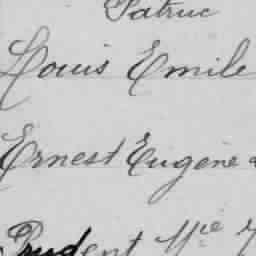 Patruc
Louis Emile
Ernest Eugène
Prudent Mie